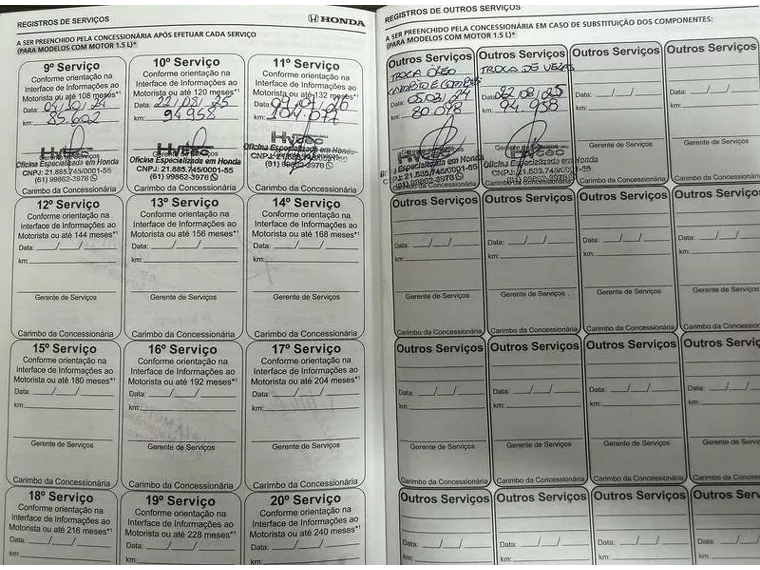 REGISTROS DE SERVIÇOS
HONDA
A SER PREENCHIDO PELA CONCESSIONÁRIA APÓS EFETUAR CADA SERVIÇO
(PARA MODELOS COM MOTOR 1.5 L)*
9º Serviço
Conforme orientação na
Interface de Informações ao
Motorista ou até 108 meses*¹
Data: 04/10/24
km: 85.602
Gerente de Serviços
Hytec
Oficina Especializada em Honda
CNPJ: 21.885.745/0001-55
(61) 99862-3978
Carimbo da Concessionária
10º Serviço
Conforme orientação na
Interface de Informações ao
Motorista ou até 120 meses*¹
Data: 22/08/25
km: 94958
Gerente de Serviços
Oficina Especializada em Honda
CNPJ: 21.885.745/0001-55
(61) 99862-3978
Carimbo da Concessionária
11º Serviço
Conforme orientação na
Interface de Informações ao
Motorista ou até 132 meses*¹
Data:
km: 104.077
Oficina Especializada em Honda
CNPJ: 21.885.745
(61) 99862-3978
Carimbo da Concessionária
12º Serviço
Conforme orientação na
Interface de Informações ao
Motorista ou até 144 meses*¹
Data: __/__/__
km:
Gerente de Serviços
Carimbo da Concessionária
13º Serviço
Conforme orientação na
Interface de Informações ao
Motorista ou até 156 meses*¹
Data: __/__/__
km:
Gerente de Serviços
Carimbo da Concessionária
14º Serviço
Conforme orientação na
Interface de Informações ao
Motorista ou até 168 meses*¹
Data: __/__/__
km:
Gerente de Serviços
Carimbo da Concessionária
15º Serviço
Conforme orientação na
Interface de Informações ao
Motorista ou até 180 meses*¹
Data: __/__/__
km:
Gerente de Serviços
Carimbo da Concessionária
16º Serviço
Conforme orientação na
Interface de Informações ao
Motorista ou até 192 meses*¹
Data: __/__/__
km:
Gerente de Serviços
Carimbo da Concessionária
17º Serviço
Conforme orientação na
Interface de Informações ao
Motorista ou até 204 meses*¹
Data: __/__/__
km:
Gerente de Serviços
Carimbo da Concessionária
18º Serviço
Conforme orientação na
Interface de Informações ao
Motorista ou até 216 meses*¹
Data: __/__/__
km:
19º Serviço
Conforme orientação na
Interface de Informações ao
Motorista ou até 228 meses*¹
Data: __/__/__
km:
20º Serviço
Conforme orientação na
Interface de Informações ao
Motorista ou até 240 meses*¹
Data: __/__/__
km:
REGISTROS DE OUTROS SERVIÇOS
A SER PREENCHIDO PELA CONCESSIONÁRIA EM CASO DE SUBSTITUIÇÃO DOS COMPONENTES:
(PARA MODELOS COM MOTOR 1.5 L)*
Outros Serviços
TROCA ÓLEO
Data: 05/03/24
km: 80.078
Especializada em Honda
21.885.745/0001-55
99862-3978
Carimbo da Concessionária
Outros Serviços
TROCA DE VELAS
Data: 22/08/25
km: 94.958
Oficina Especializada em Honda
Carimbo da Concessionária
Outros Serviços
Data: __/__/__
km:
Gerente de Serviços
Carimbo da Concessionária
Outros Serviços
Data: __/__/__
km:
Gerente de Serviços
Carimbo da Concessionária
Outros Serviços
Data: __/__/__
km:
Gerente de Serviços
Carimbo da Concessionária
Outros Serviços
Data: __/__/__
km:
Gerente de Serviços
Carimbo da Concessionária
Outros Serviços
Data: __/__/__
km:
Gerente de Serviços
Carimbo da Concessionária
Outros Serviços
Data: __/__/__
km:
Gerente de Serviços
Carimbo da Concessionária
Outros Serviços
Data: __/__/__
km:
Gerente de Serviços
Carimbo da Concessionária
Outros Serviços
Data: __/__/__
km:
Gerente de Serviços
Carimbo da Concessionária
Outros Serviços
Data: __/__/__
km:
Gerente de Serviços
Carimbo da Concessionária
Outros
Data: __/__/__
km:
Gerente de Serviços
Carimbo da Concessionária
Outros Serviços
Data: __/__/__
km:
Outros Serviços
Data: __/__/__
km:
Outros Serviços
Data: __/__/__
km:
Outros
Data: __/__/__
km: